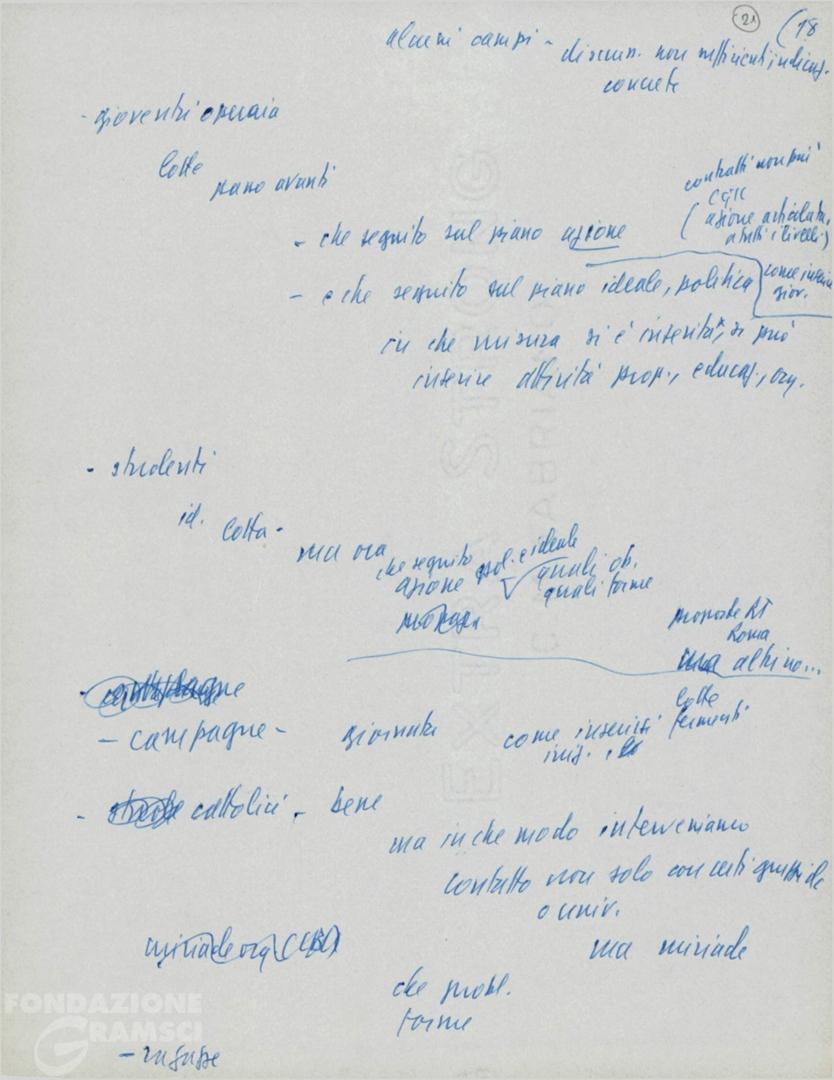 21
(18
alcuni campi - discuss. non sufficienti, indicaz.
concrete
- gioventù operaia
lotte
siano avanti
contratti non più
CGIL
(azione articolata,
a tutti i livelli)
- che seguito sul piano azione
- e che seguito sul piano ideale, politica
come inserire
giov.
in che misura si è inserita, si può
inserire attività prop., educaz., org.
- studenti
id. lotta -
ma ora
che seguito
azione pol. e ideale
quali ob.
quali forme
proposte
Roma
ma altrino...
- campagne - giornata
come inserirsi
iniz.
lotte
fermenti
- cattolici - bene
ma in che modo interveniamo
contatto non solo con certi gruppi dc
o univ.
miriade org
ma miriade
che probl.
forme
- ragazze
FONDAZIONE
GRAMSCI
EXTRA STRONG